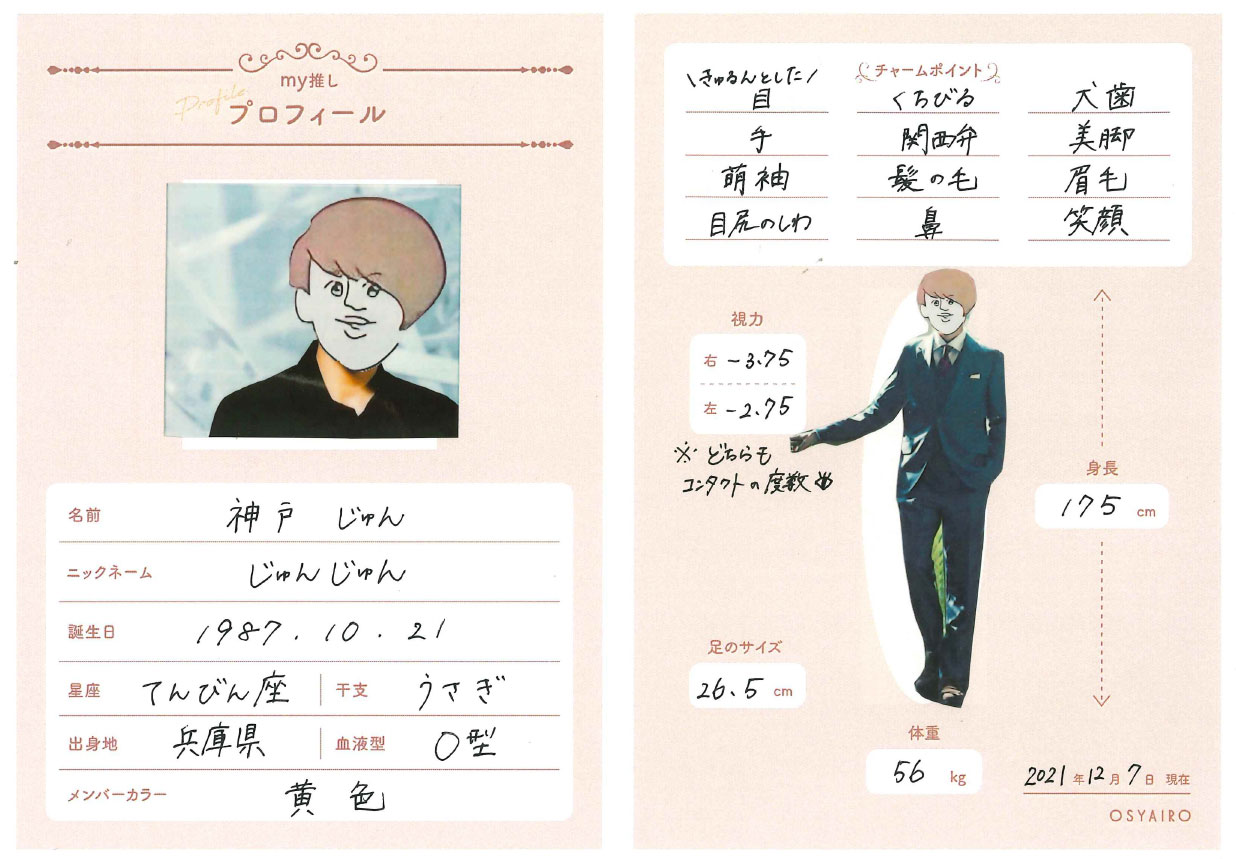 my推し
Profile
プロフィール
名前 神戸 じゅん
ニックネーム じゅんじゅん
誕生日 1987.10.21
星座 てんびん座 干支 うさぎ
出身地 兵庫県 血液型 O型
メンバーカラー 黄色
チャームポイント
\きゅるんとした/
目 くちびる 犬歯
手 関西弁 美脚
萌袖 髪の毛 眉毛
目尻のしわ 鼻 笑顔
視力
右 -3.75
左 -2.75
※どちらも
コンタクトの度数
身長
175 cm
足のサイズ
26.5 cm
体重
56 kg
2021年12月7日 現在
OSYAIRO